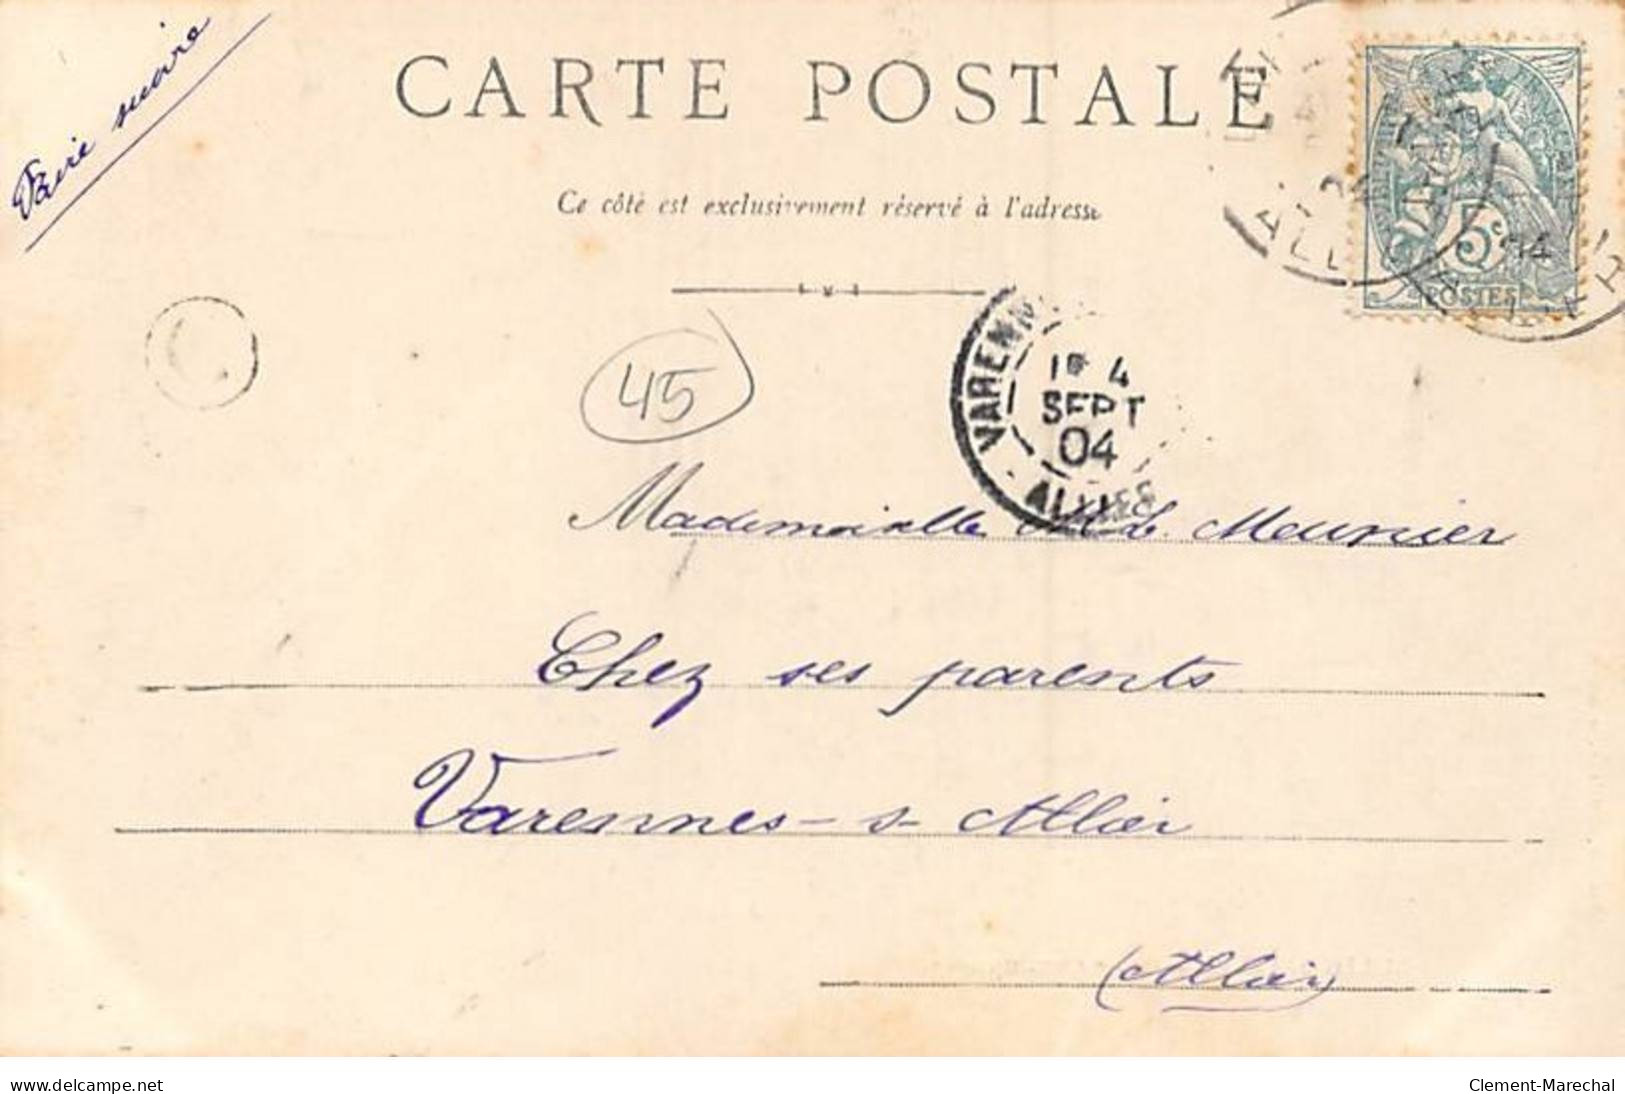 Faire suivre
CARTE POSTALE
Ce côté est exclusivement réservé à l'adresse
5c
POSTES
45
VARENN
1E 4
SEPT
04
ALLIER
Mademoiselle Meunier
Chez ses parents
Varennes-s-Allier
(Allier)
delcampe.net
Clement-Marechal